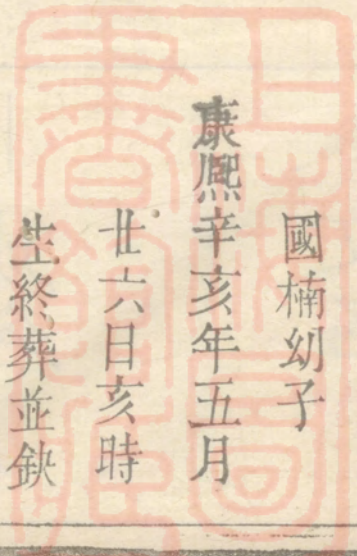 國楠幼子
康熙辛亥年五月
廿六日亥時
生終葬並缺